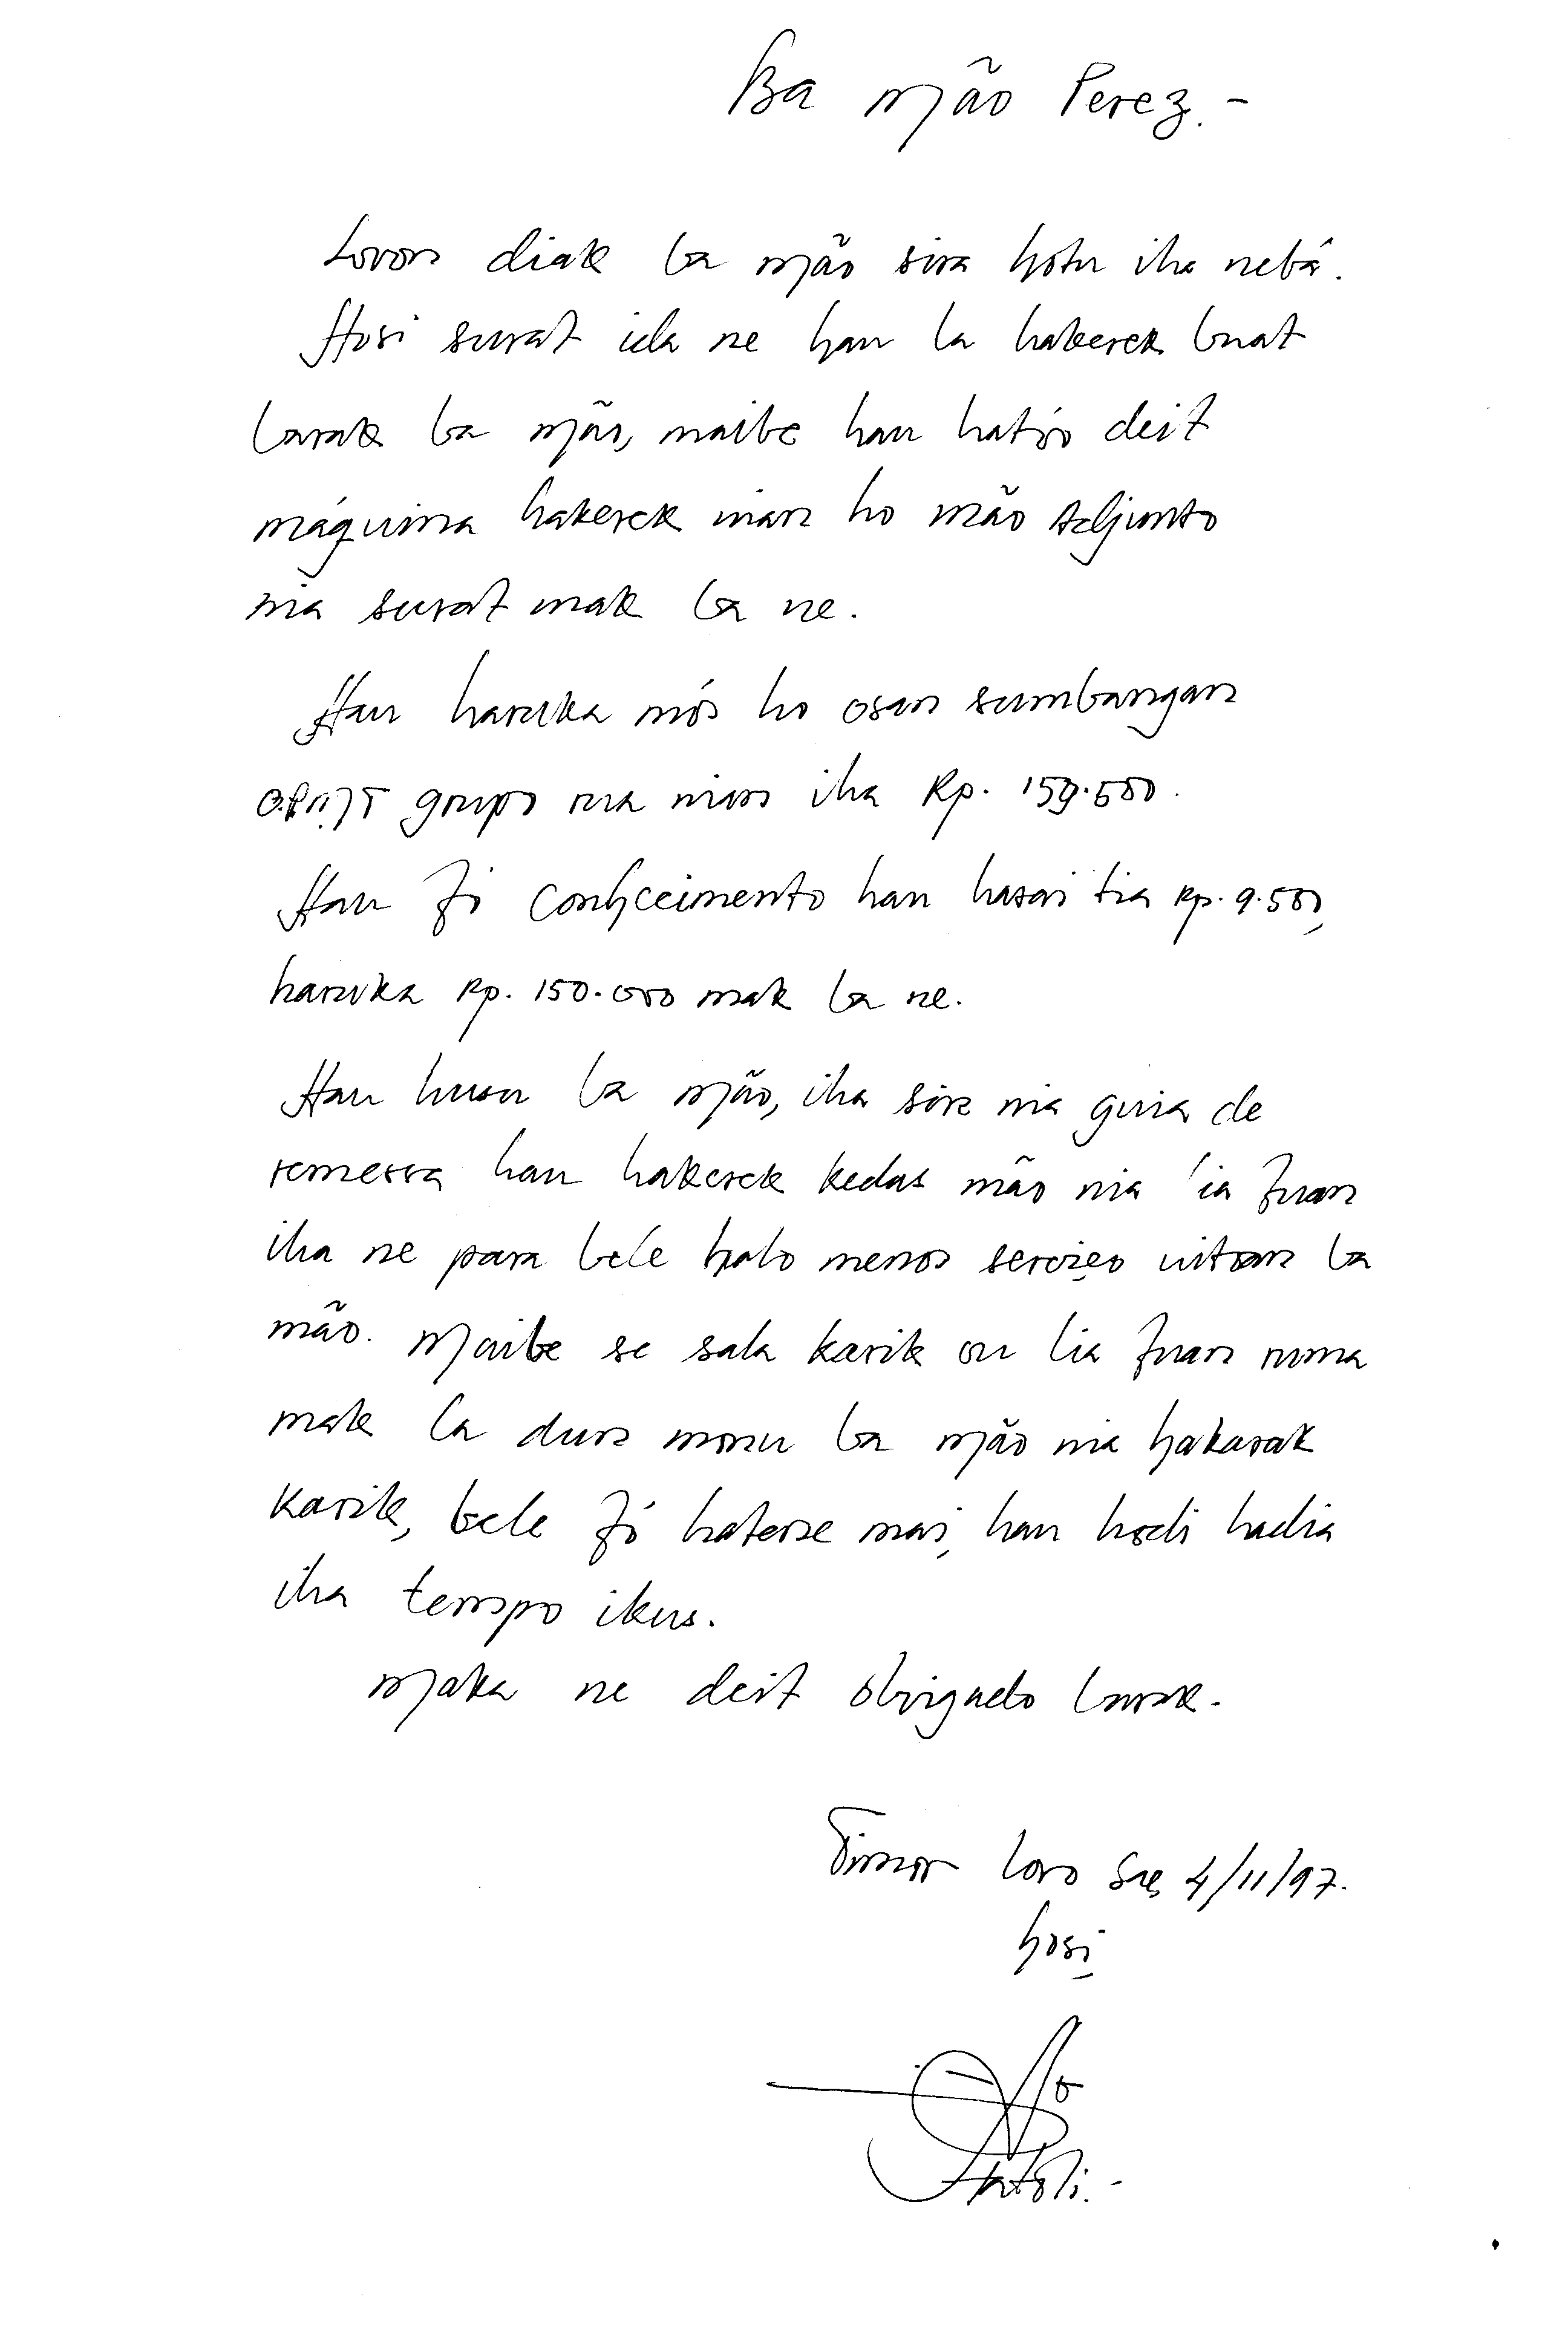 Ba Mão Perez.-
Loron diak ba Mão sira hotu iha nebá.
Hosi surat ida ne hau la hakerek buat
barak ba Mão, maibe hau ható deit
máquina hakerek inan ho mão Adjunto
nia surat mak ba ne.
Hau haruka mós ho osan sumbangan
O.P.M.T grupo rua nian iha Rp. 159.500.
Hau fó conhecimento hau hasai tia Rp. 9.500,
haruka Rp. 150.000 mak ba ne.
Hau husu ba Mão, iha sira nia guia de
remessa hau hakerek kedas mão nia lia fuan
iha ne para bele halo menos serviço uitoan ba
mão. Maibe se sala karik ou lia fuan ruma
mak la dun monu ba Mão nia hakarak
karik, bele fó hatene mai, hau hodi hadia
iha tempo ikus.
Maka ne deit obrigado barak.
Timor Loro Sae, 4/11/97.
hosi